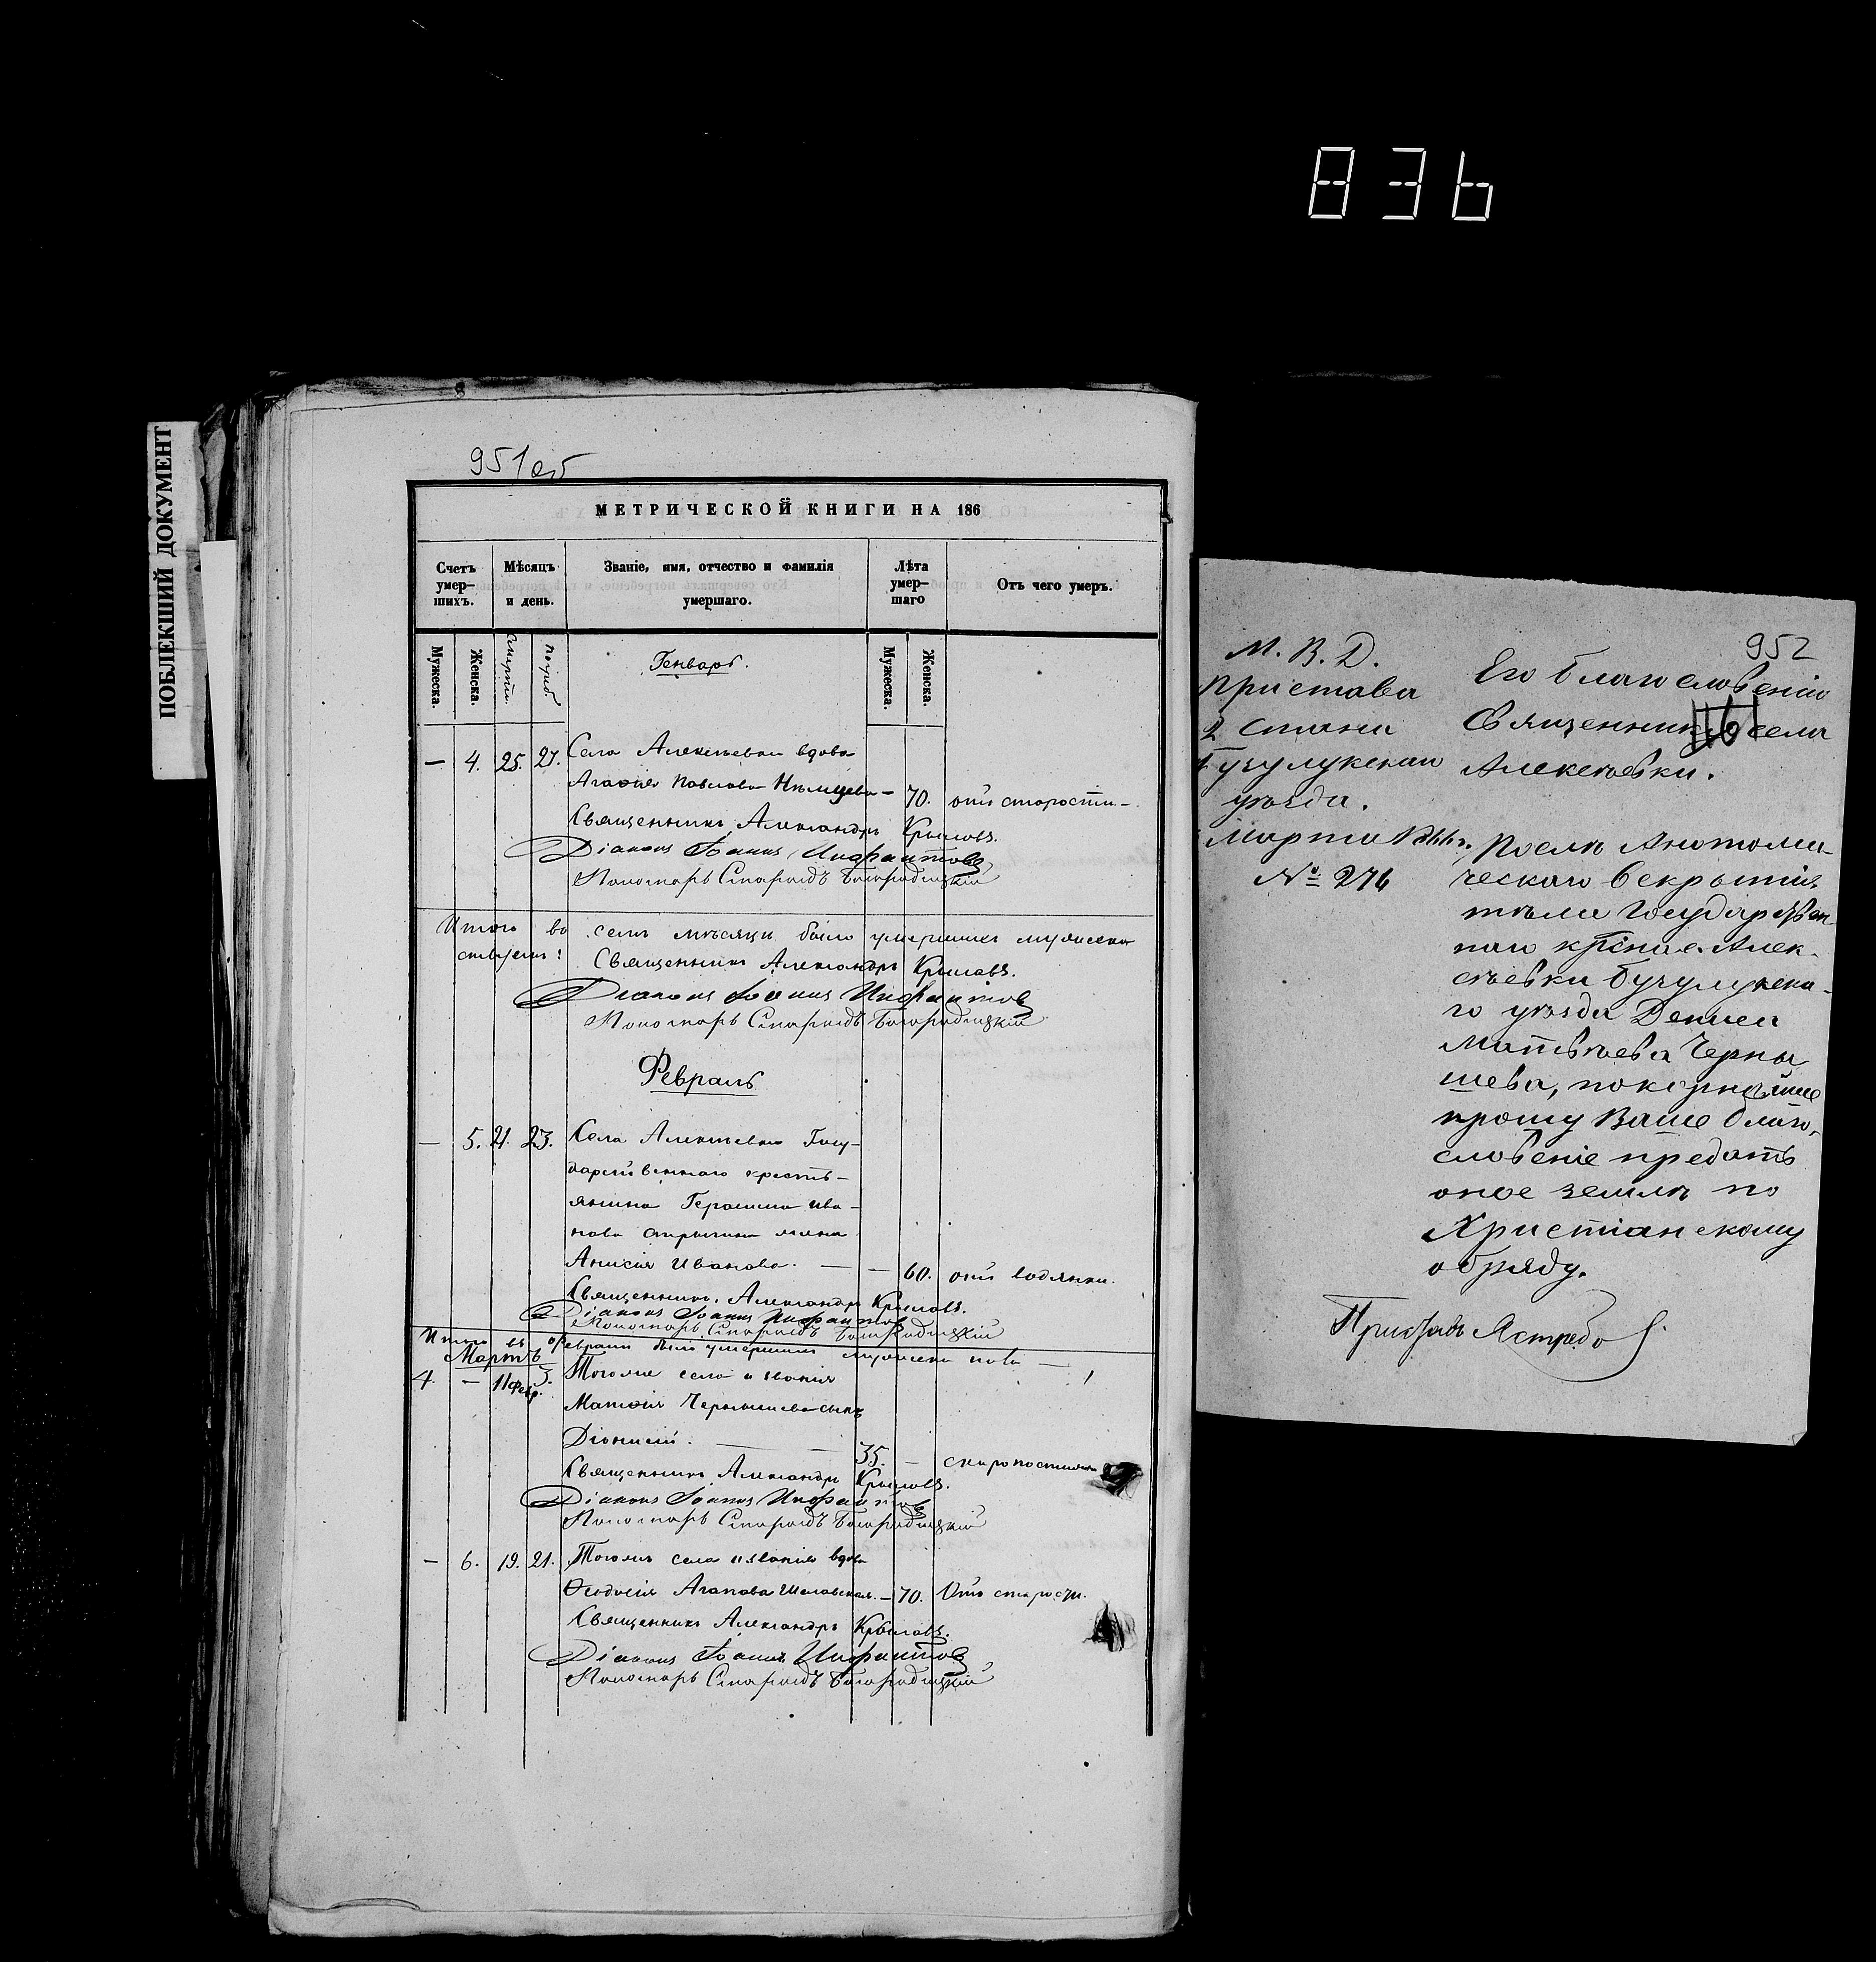 836
ПОБЛЕКШИЙ ДОКУМЕНТ
951об
МЕТРИЧЕСКОЙ КНИГИ НА 186
Счетъ умер-шихъ.
Мѣсяцъ и день.
Званіе, имя, отчество и фамилія умершаго.
Лѣта умер-шаго
Отъ чего умеръ.
Мужеска.
Женска.
смерти.
погреб.
Генварь.
Мужеска.
Женска.
— 4. 25. 27. Села Алексѣевки вдова
Агафія Павлова Нѣмцева — 70. отъ старости —
Священникъ Александръ Крыловъ.
Діаконъ Іоаннъ Инфантовъ
Пономарь Смарагдъ Богородицкій
Итого въ семъ мѣсяцѣ было умершихъ мужеска
Священникъ Александръ Крыловъ.
Діаконъ Іоаннъ Инфантовъ
Пономарь Смарагдъ Богородицкій
Февраль
— 5. 21. 23. Села Алексѣевки Госу-
дарственнаго кресть-
янина Герасима Ива-
нова жена
Анисія Иванова. — — 60. отъ водянки.
Священникъ Александръ Крыловъ.
Діаконъ Іоаннъ Инфантовъ
Пономарь Смарагдъ Богородицкій
Итого въ Февралѣ было умершихъ мужеска пола — 1
Мартъ
4. — 11 Февр. 3. Тогоже села и званія
Матфія Чернышева сынъ
Діонисій. — — 35. — скоропостижно
Священникъ Александръ Крыловъ.
Діаконъ Іоаннъ Инфантовъ
Пономарь Смарагдъ Богородицкій
— 6. 19. 21. Тогожъ села и званія вдова
Ѳеодосія Агапова — 70. Отъ старости.
Священникъ Александръ Крыловъ.
Діаконъ Іоаннъ Инфантовъ
Пономарь Смарагдъ Богородицкій
952
М. В. Д.
Пристава
2 стана
Бузулукскаго
уѣзда.
Марта
№ 276
Его благословенію
Священнику села
Алексѣевки.
Послѣ Анатоми-
ческаго вскрытія
тѣла Государствен-
наго кр͠на с. Алек-
сѣевки Бузулукска-
го уѣзда Дениса
Матвѣева Черны
шева, покорнѣйше
прошу Ваше благо-
словеніе предать
оное землѣ по
Христіанскому
обряду.
Приставъ Ястребов